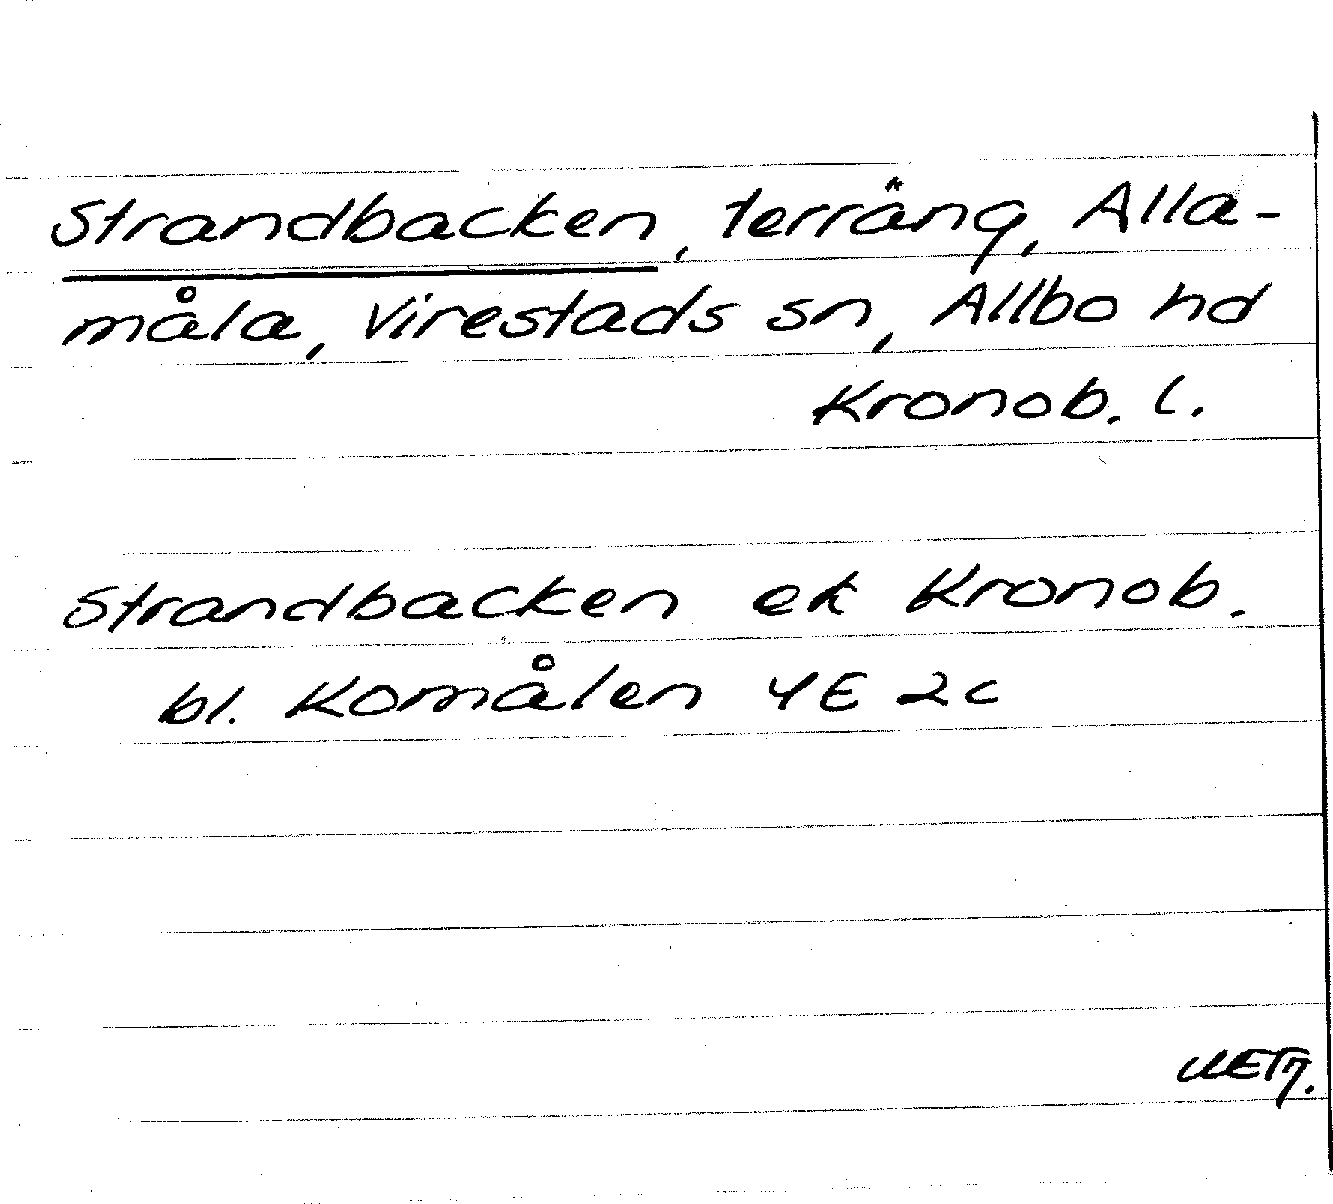 Strandbacken, terräng, Alla-
måla, Virestads sn, Allbo hd
Kronob. l.
Strandbacken ek Kronob.
bl. Komålen 4E 2c